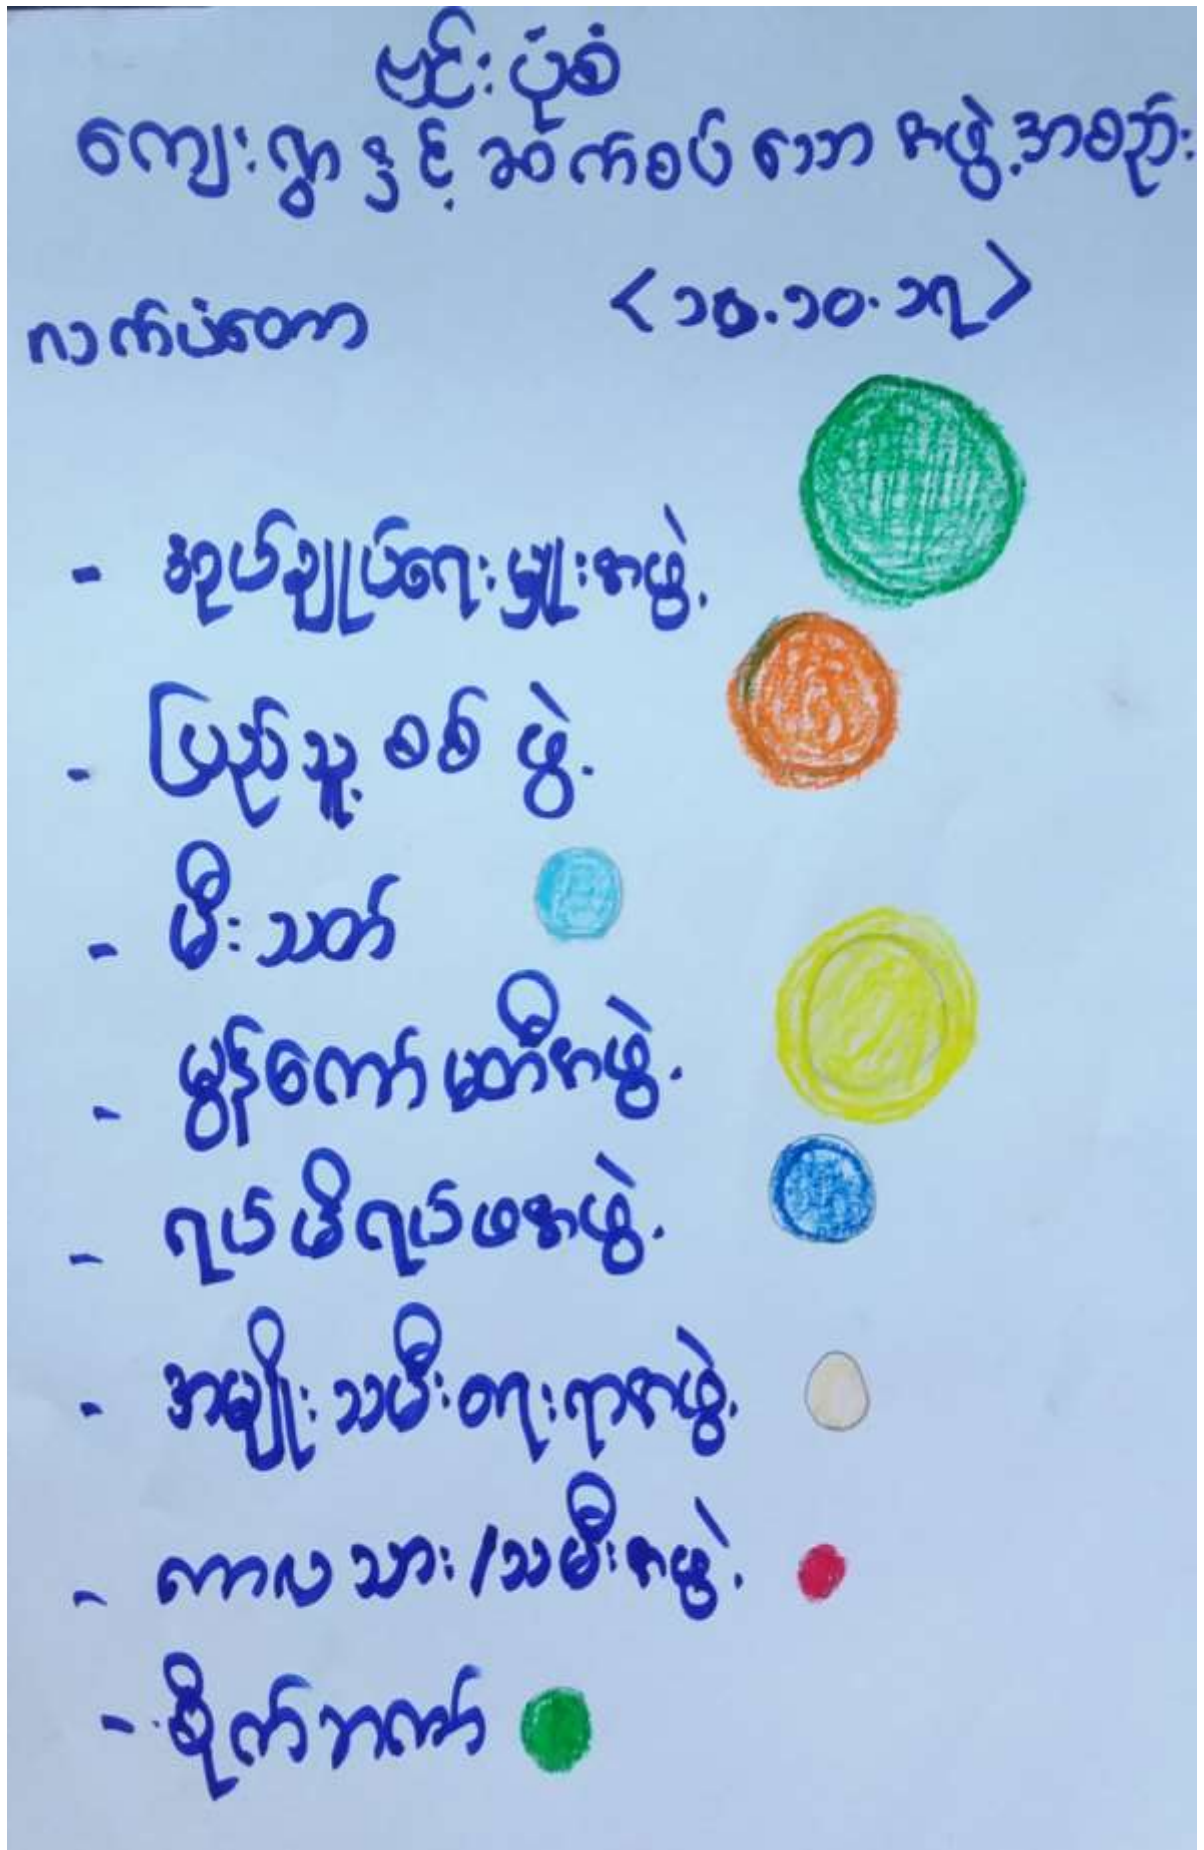 ဗင်းပုံစံ
ကျေးရွာနှင့်ဆက်စပ်သောအဖွဲ့အစည်း
လက်ပံတော <၁၆.၁၀.၁၇>
- အုပ်ချုပ်ရေးမှူးအဖွဲ့
- ပြည်သူ့စစ်ဖွဲ့
- မီးသတ်
- မွန်ကော်မတီအဖွဲ့
- ရပ်မိရပ်ဖအဖွဲ့
- အမျိုးသမီးတေးရာအဖွဲ့
- ကာလသား/သမီးအဖွဲ့
- စိုက်ဘဏ်